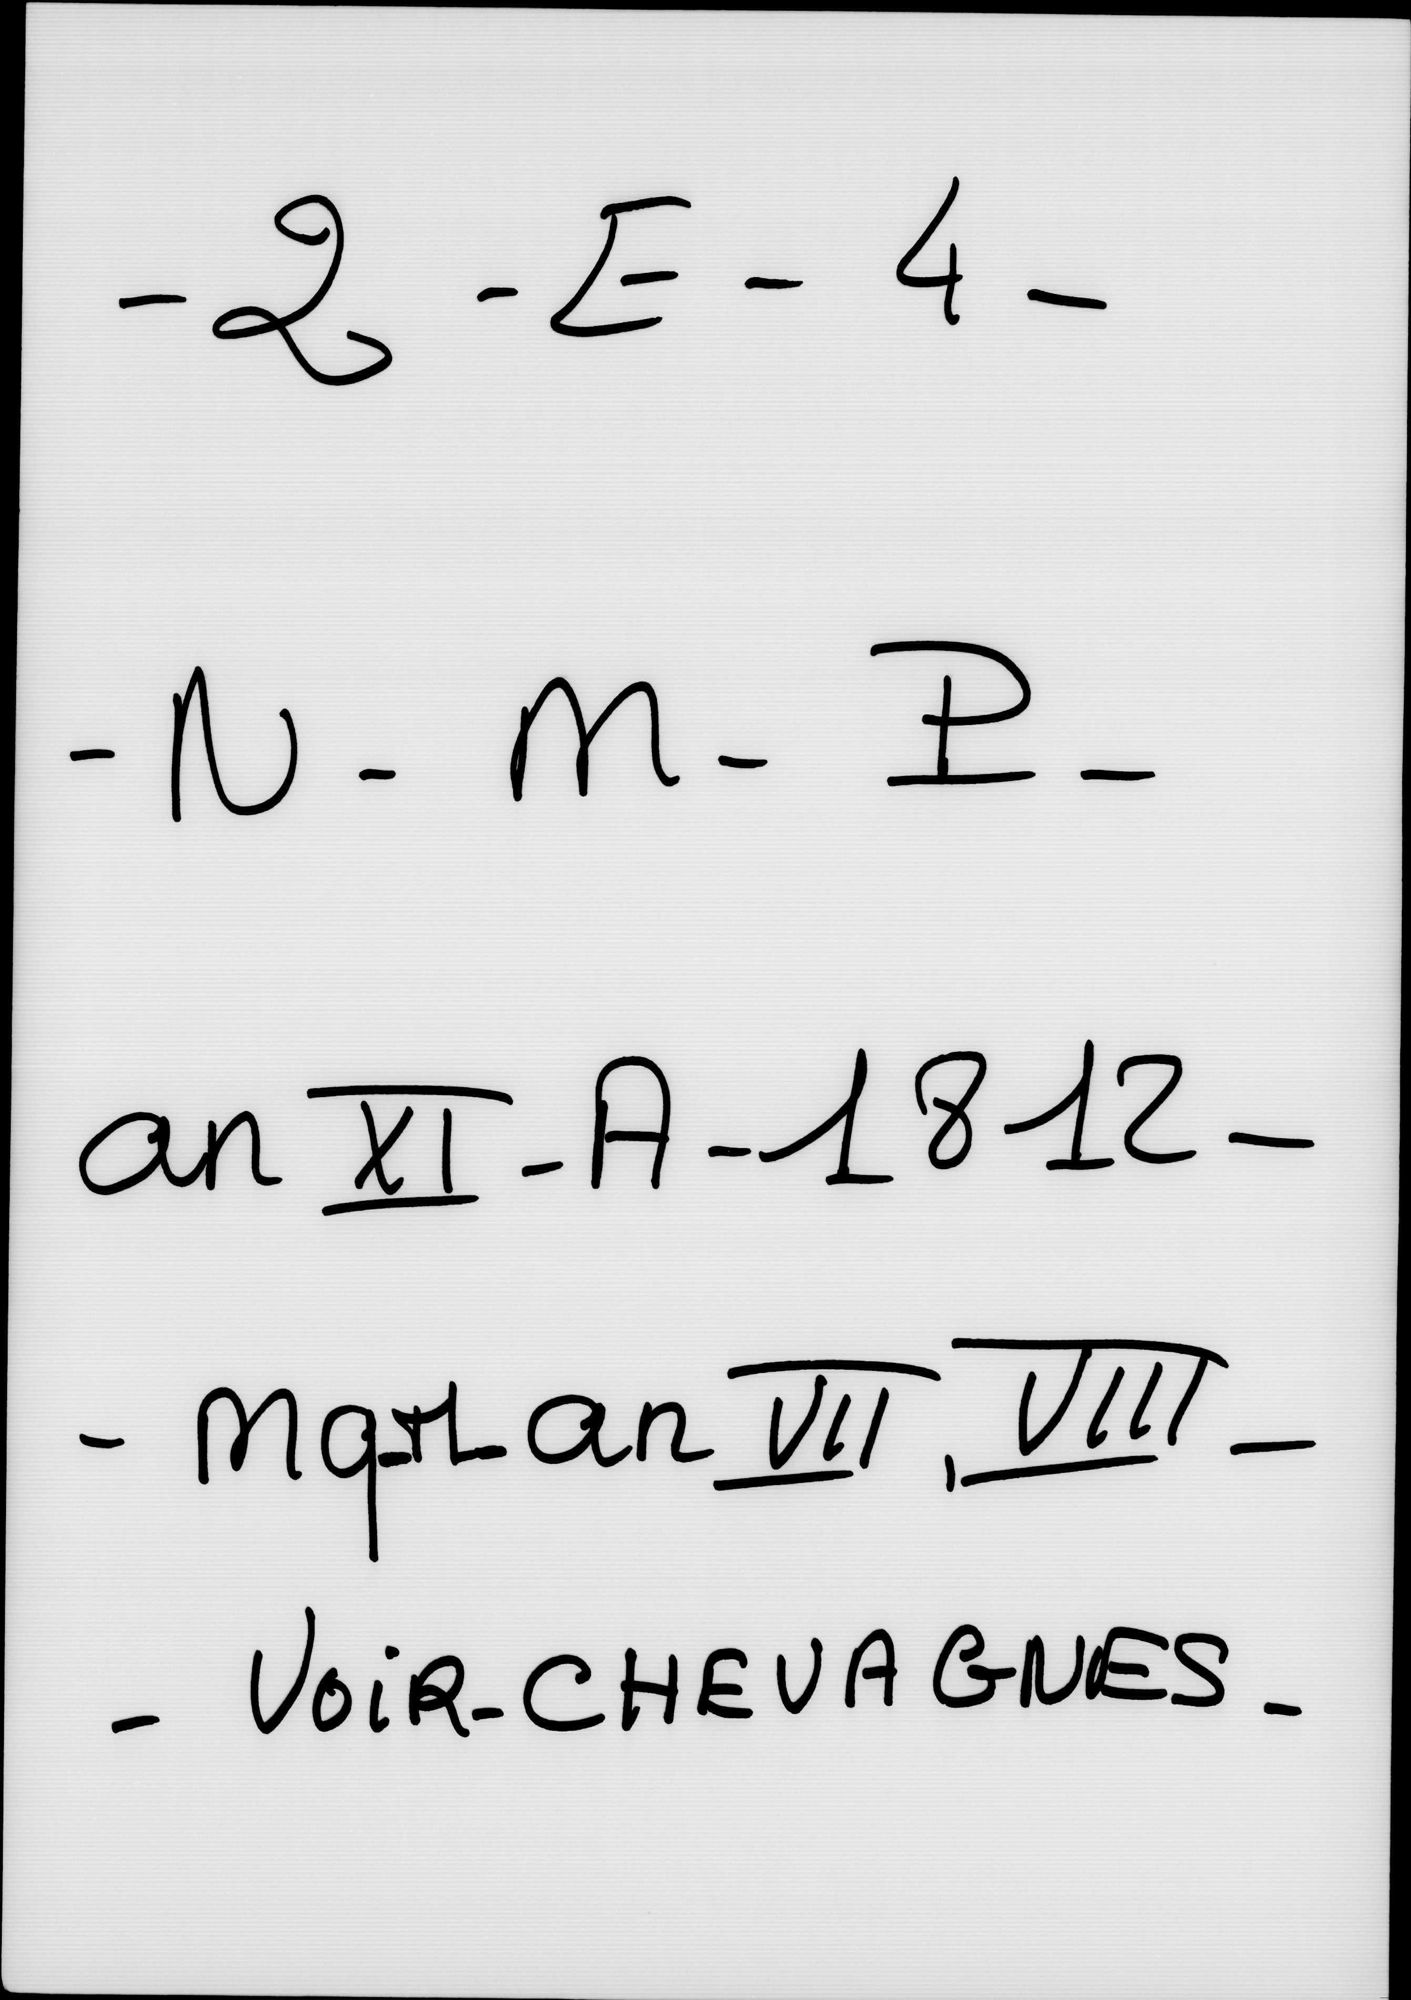 - 2 - E - 4 -
- N - M - P -
an XI - A - 1812 -
- Mqt - an VII, VIII -
- VOIR - CHEVAGNES -